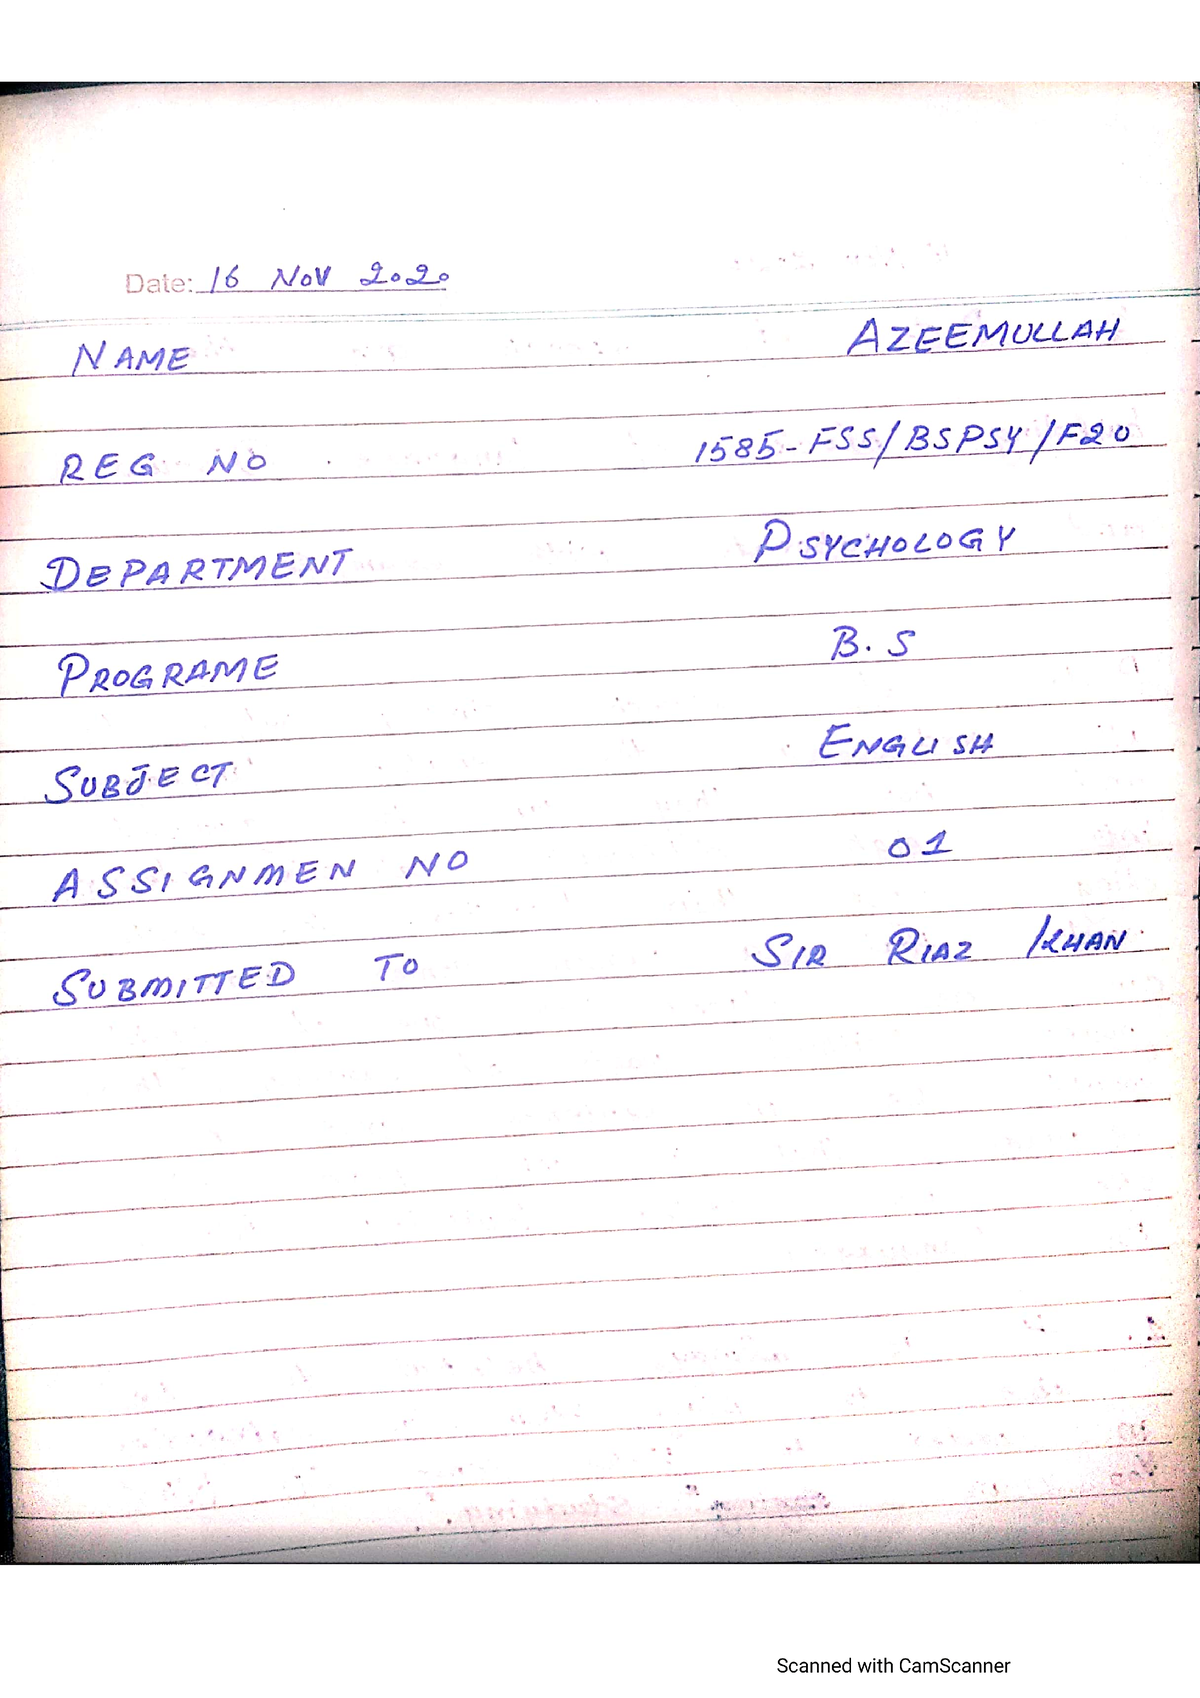 Date: 16 NOV 2020
NAME AZEEMULLAH
REG NO 1585-FSS/BSPSY/F20
DEPARTMENT PSYCHOLOGY
PROGRAME B.S
SUBJECT ENGLISH
ASSIGNMEN NO 01
SUBMITTED TO SIR RIAZ KHAN
Scanned with CamScanner